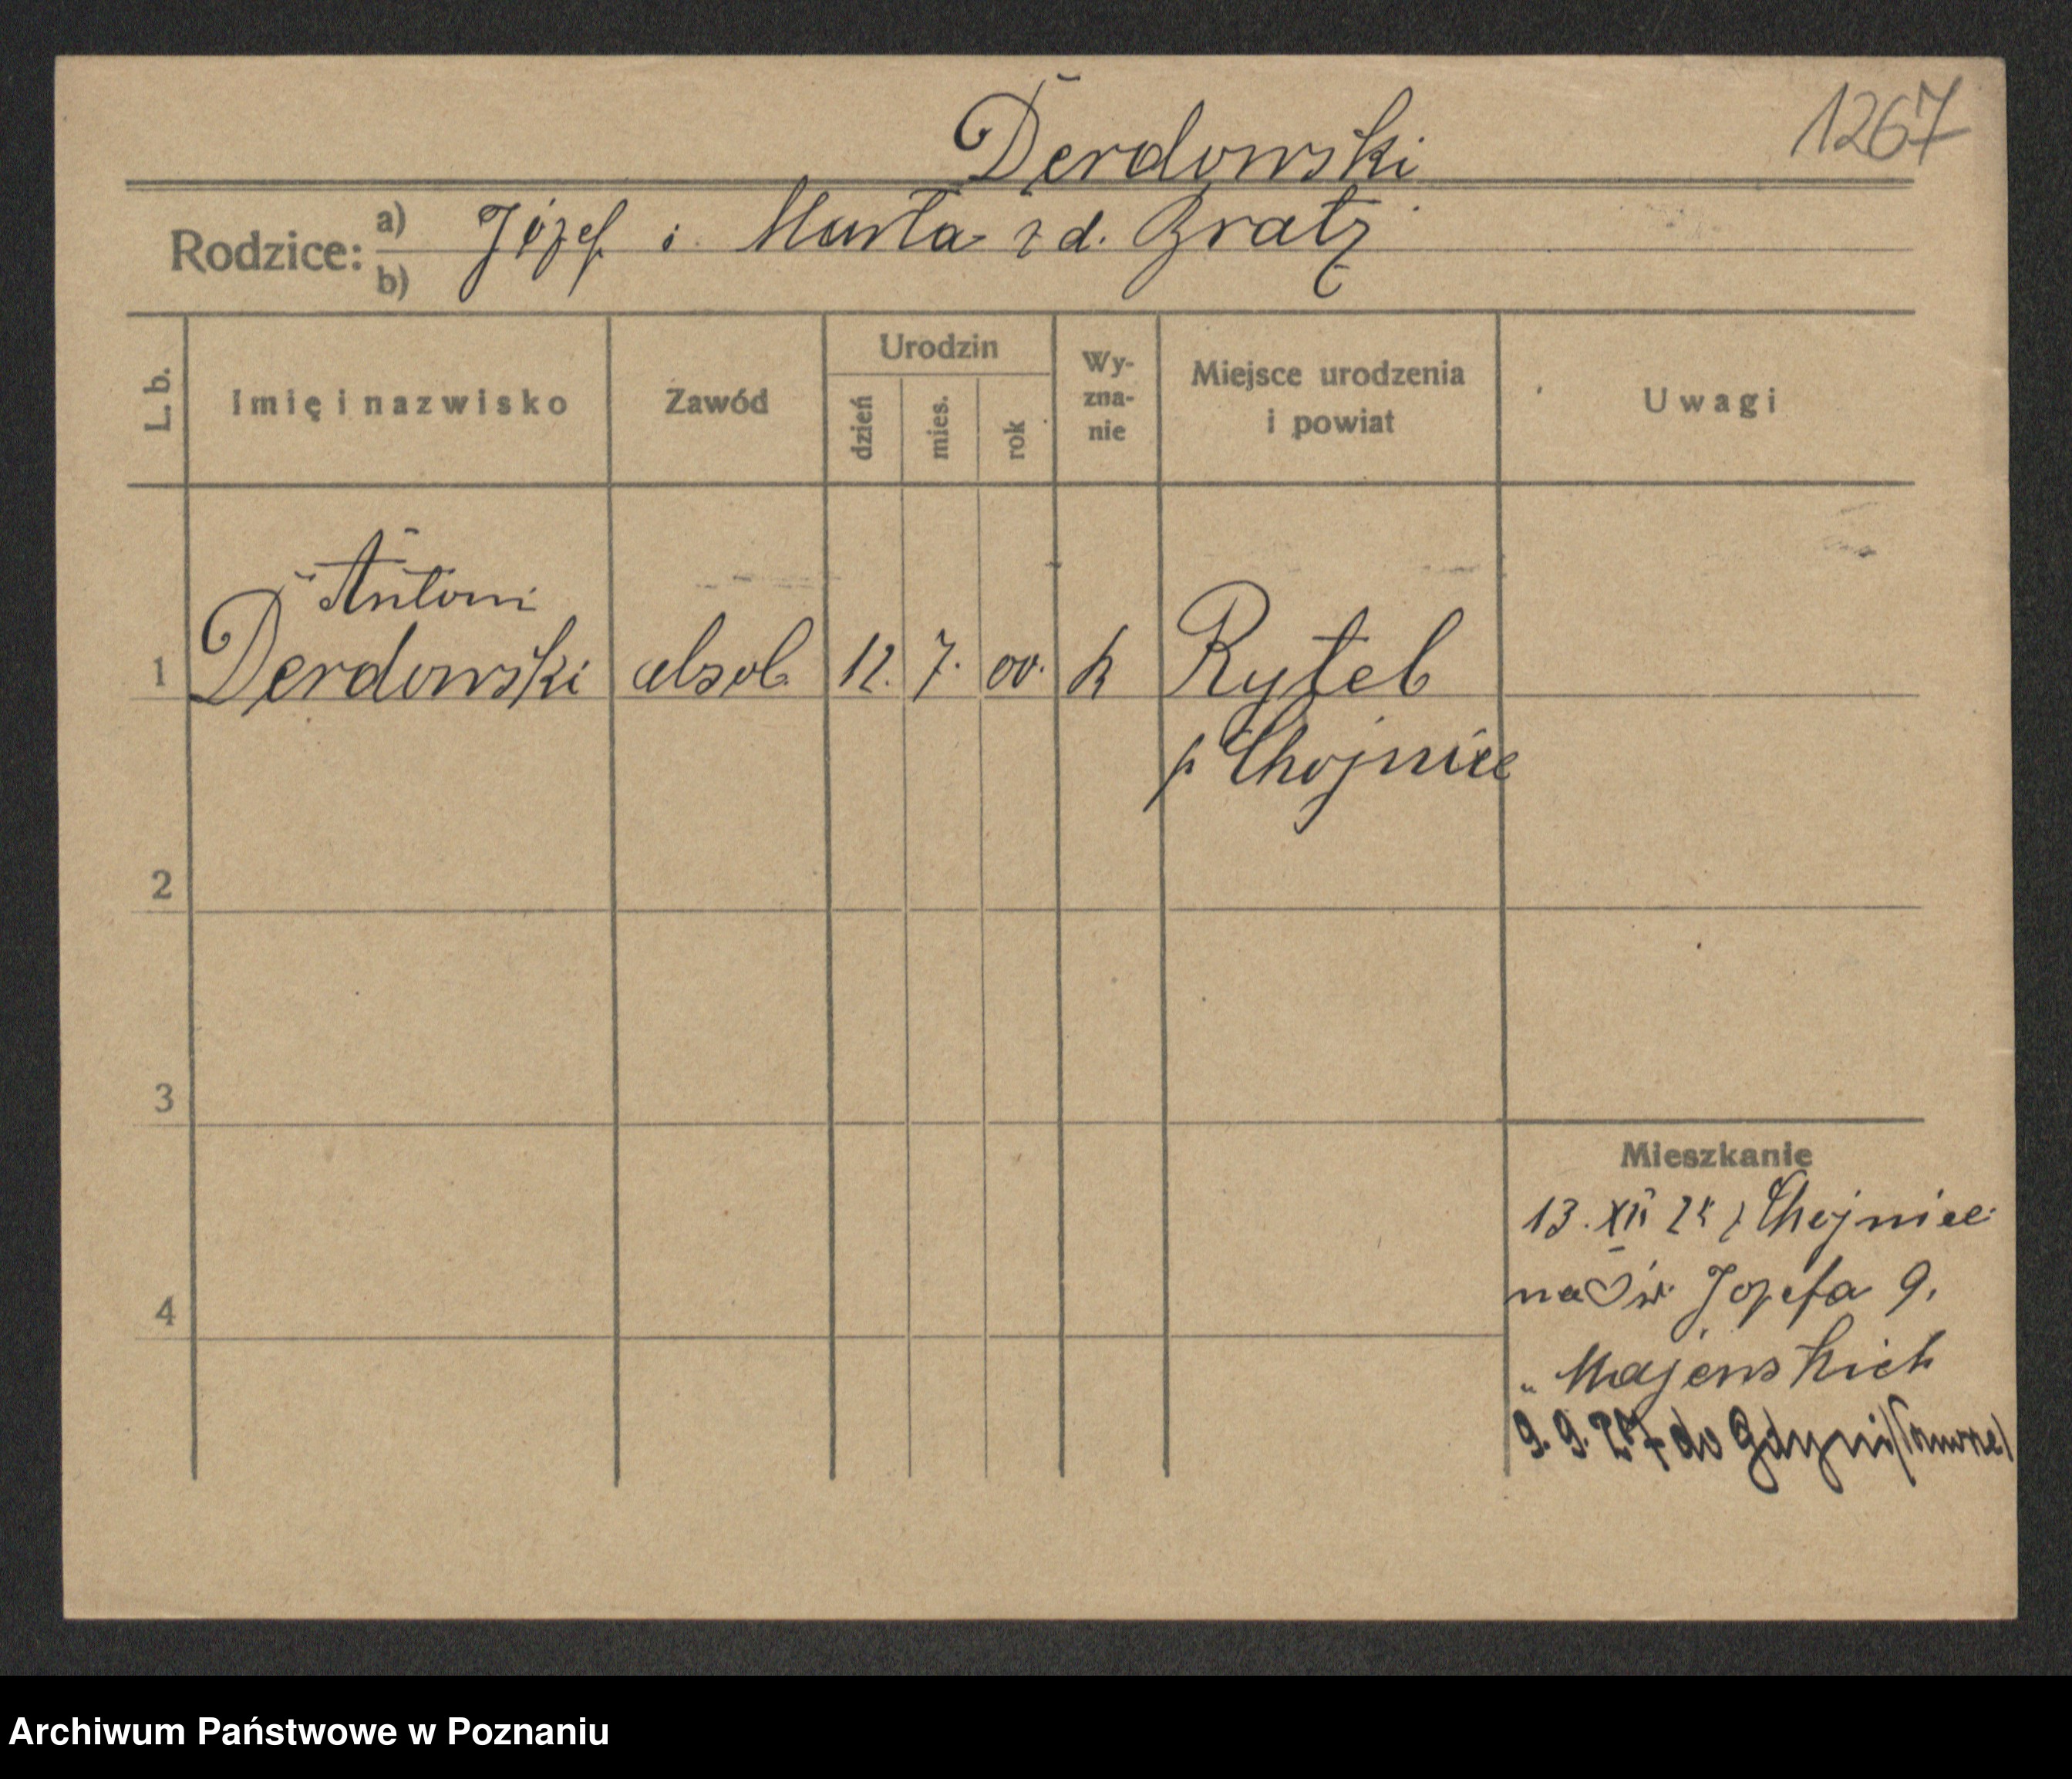 1267
Derdowski
Rodzice: a) Józef i Marta z d. Bratz
b)
L. b. Imię i nazwisko Zawód Urodzin dzień mies. rok Wy-zna-nie Miejsce urodzenia i powiat Uwagi
Antoni
1 Derdowski absol. 12. 7. 00. k Rytel
p Chojnice
2
3
Mieszkanie
13. XII z Chojnice
na Św. Jozefa 9.
4
" Majewskich
9. 9. 27 do Gdyni /Pomorze/
Archiwum Państwowe w Poznaniu